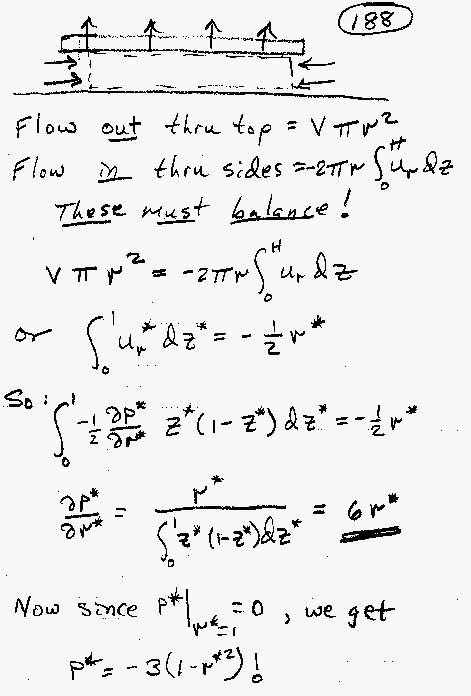 188
Flow out thru top = V π r²
Flow in thru sides = -2πr ∫₀ᴴ uᵣ dz
These must balance!
V π r² = -2πr ∫₀ᴴ uᵣ dz
or ∫₀¹ uᵣ* dz* = - 1/2 r*
So: ∫₀¹ -1/2 ∂p*/∂r* z*(1-z*) dz* = -1/2 r*
∂p*/∂r* = r* / ∫₀¹ z*(1-z*)dz* = 6r*
Now since p*|r*=1 = 0, we get
p* = -3(1-r*²)!